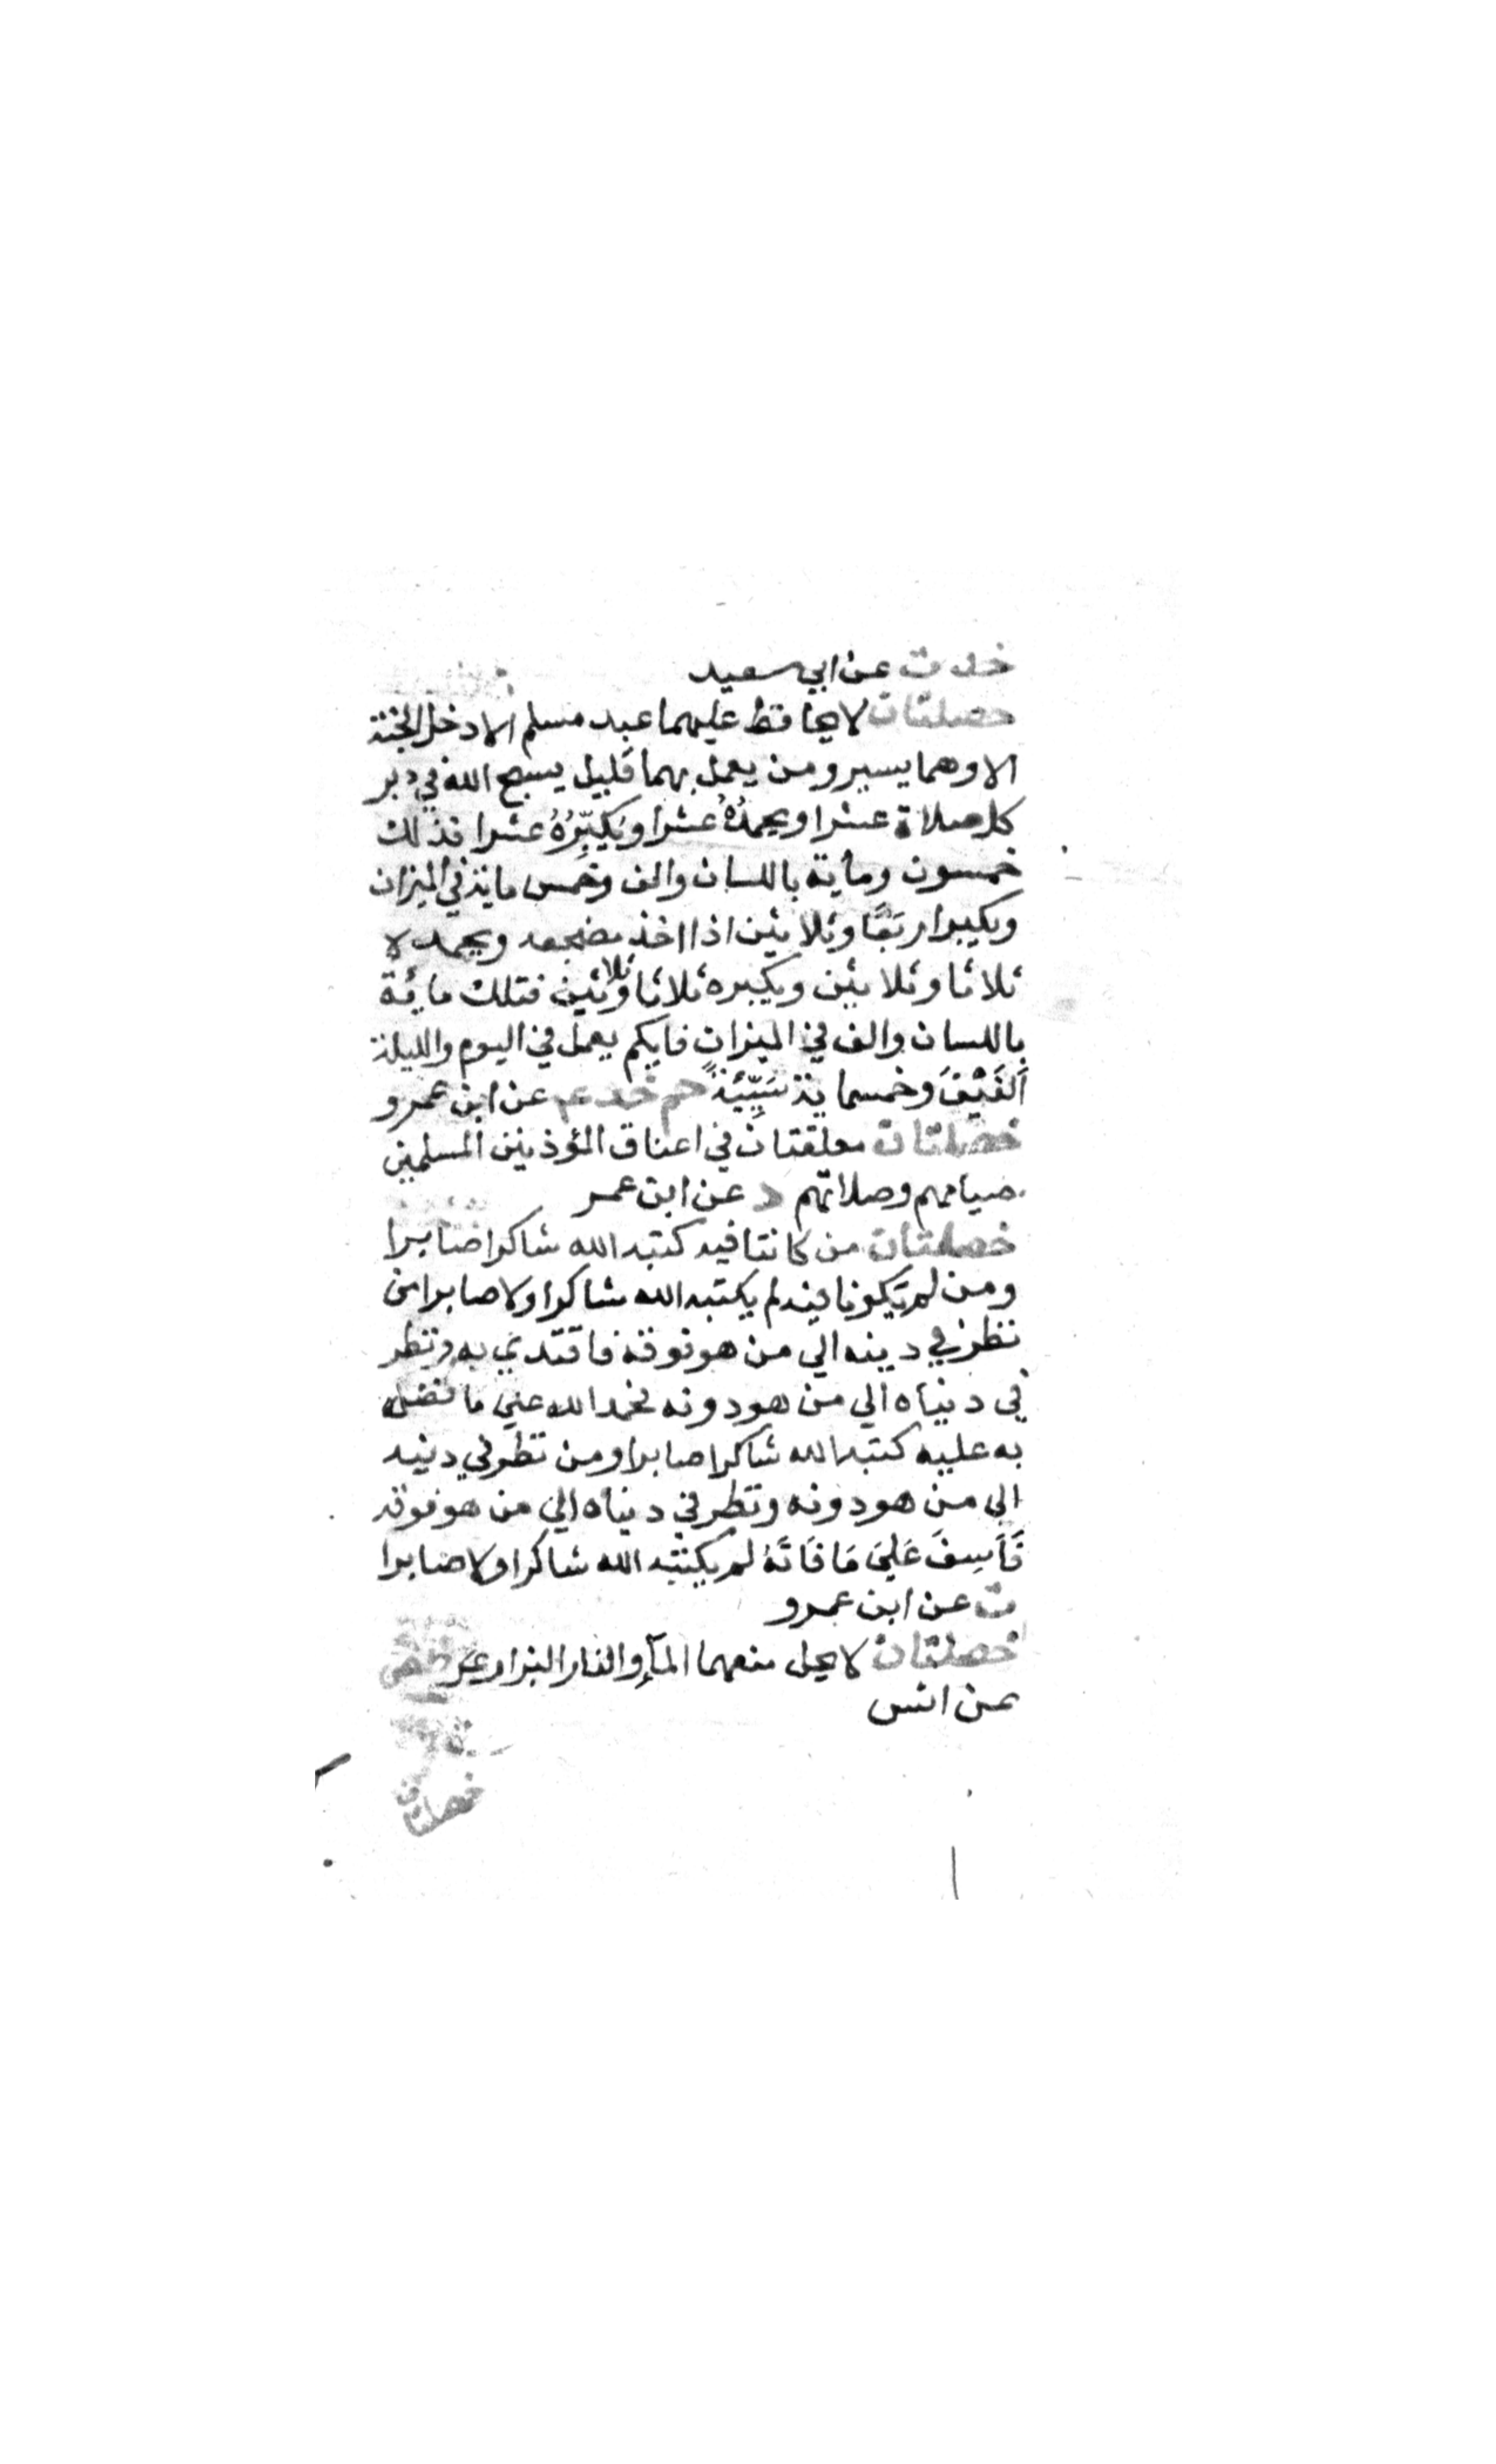 خد ت عن ابي سعيد
خصلتان لا يحافظ عليهما عبد مسلم الا دخل الجنة
الا وهما يسير ومن يعمل بهما قليل يسبح الله في دبر
كل صلاة عشرا ويحمدُهُ عشرا ويُكَبِّرُهُ عشرا فذلك
خمسون وماية باللسان والف وخمس ماية في الميزان
ويكبر اربَعًا وثلاثين اذا اخذ مضجعه ويحمده
ثلاثا وثلاثين ويكبره ثلاثا وثلاثين فتلك مائة
باللسان والف في الميزان فايكم يعمل في اليوم والليلة
اَلفَيْنِ وخمسماية سَيِّئَةً حم خد عم عن ابن عمرو
خصلتان معلقتان في اعناق المؤذنين المسلمين
صيامهم وصلاتهم د عن ابن عمر
خصلتان من كانتا فيه كتبه الله شاكرا صابرا
ومن لم تكونا فيه لم يكتبه الله شاكرا ولا صابرا من
نظر في دينه الي من هو فوقه فاقتدي به ونظر
في دنياه الي من هو دونه فحمد الله علي ما فضله
به عليه كتبه الله شاكرا صابرا ومن نظر في دينه
الي من هو دونه ونظر في دنياه الي من هو فوقه
فَأَسِفَ عَليَ مَا فَاتَهُ لم يكتبه الله شاكرا ولا صابرا
ت عن ابن عمرو
خصلتان لا يحل منعهما المآء والنار البزار
عن انس
خصلتان